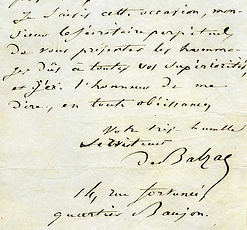 Je saisis cette occasion, mon-
sieur le secrétaire perpétuel,
de vous présenter les homma-
ges dûs à toutes vos supériorités
et j'ai l'honneur de me
dire, en toute obéissance,
Votre très humble
Serviteur
De Balzac
14, rue fortunée
quartier Beaujon.